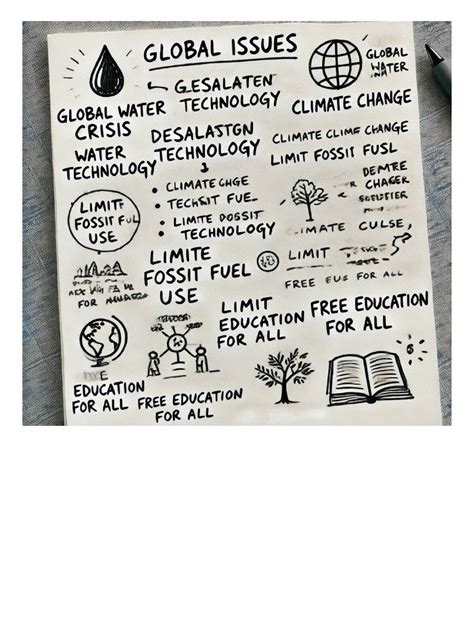 GLOBAL ISSUES
GLOBAL
WATER
GESALATEN
TECHNOLOGY
GLOBAL WATER
CRISIS
CLIMATE CHANGE
WATER
TECHNOLOGY
DESALASTGN
TECHNOLOGY
CLIMATE CLIME CHANGE
LIMIT FOSSIT FUSL
• CLIMATE CHGE
• TECHSIT FUEL
• LIMTE DOSSIT
• TECHNOLOGY
LIMIT
FOSSIT FUL
USE
DEMTRE
CHAGER
CLIMATE CULSE,
LIMIT
FREE EUS FOR ALL
LIMITE
FOSSIT FUEL
USE
FOR
LIMIT
EDUCATION
FOR ALL
FREE EDUCATION
FOR ALL
EDUCATION
FOR ALL
FREE EDUCATION
FOR ALL